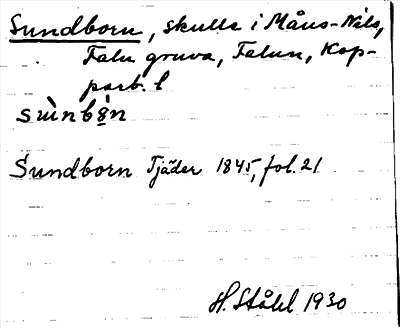 Sundborn, skulle i Måns-Nils,
Falu gruva, Falun, Kop-
parb. l
sùnbo̱n
Sundborn Tjäder 1845, fol. 21
H. Ståhl 1930